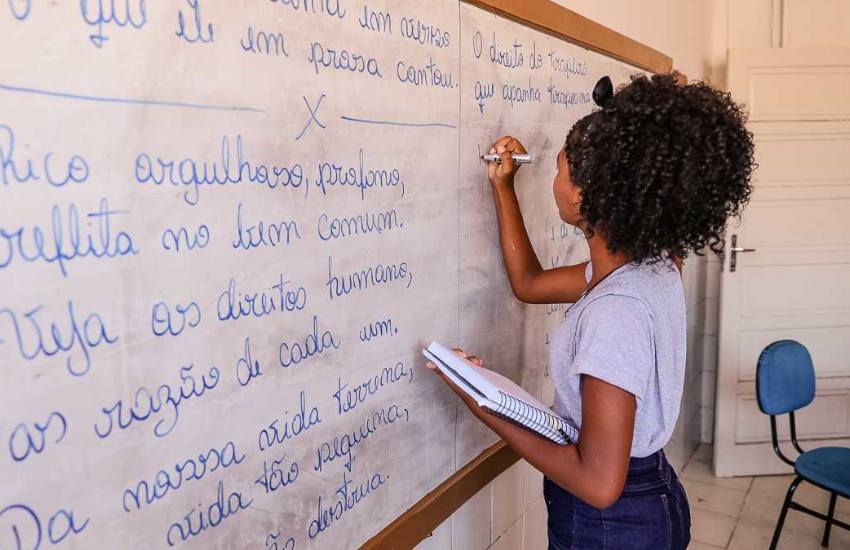 em verso
que ele em prosa cantou.
X
Rico orgulhoso, profano,
reflita no bem comum.
Veja os direitos humano,
as razão de cada um.
Da nossa vida terrena,
vida tão pequena,
destrua.
O direito do
que apanha